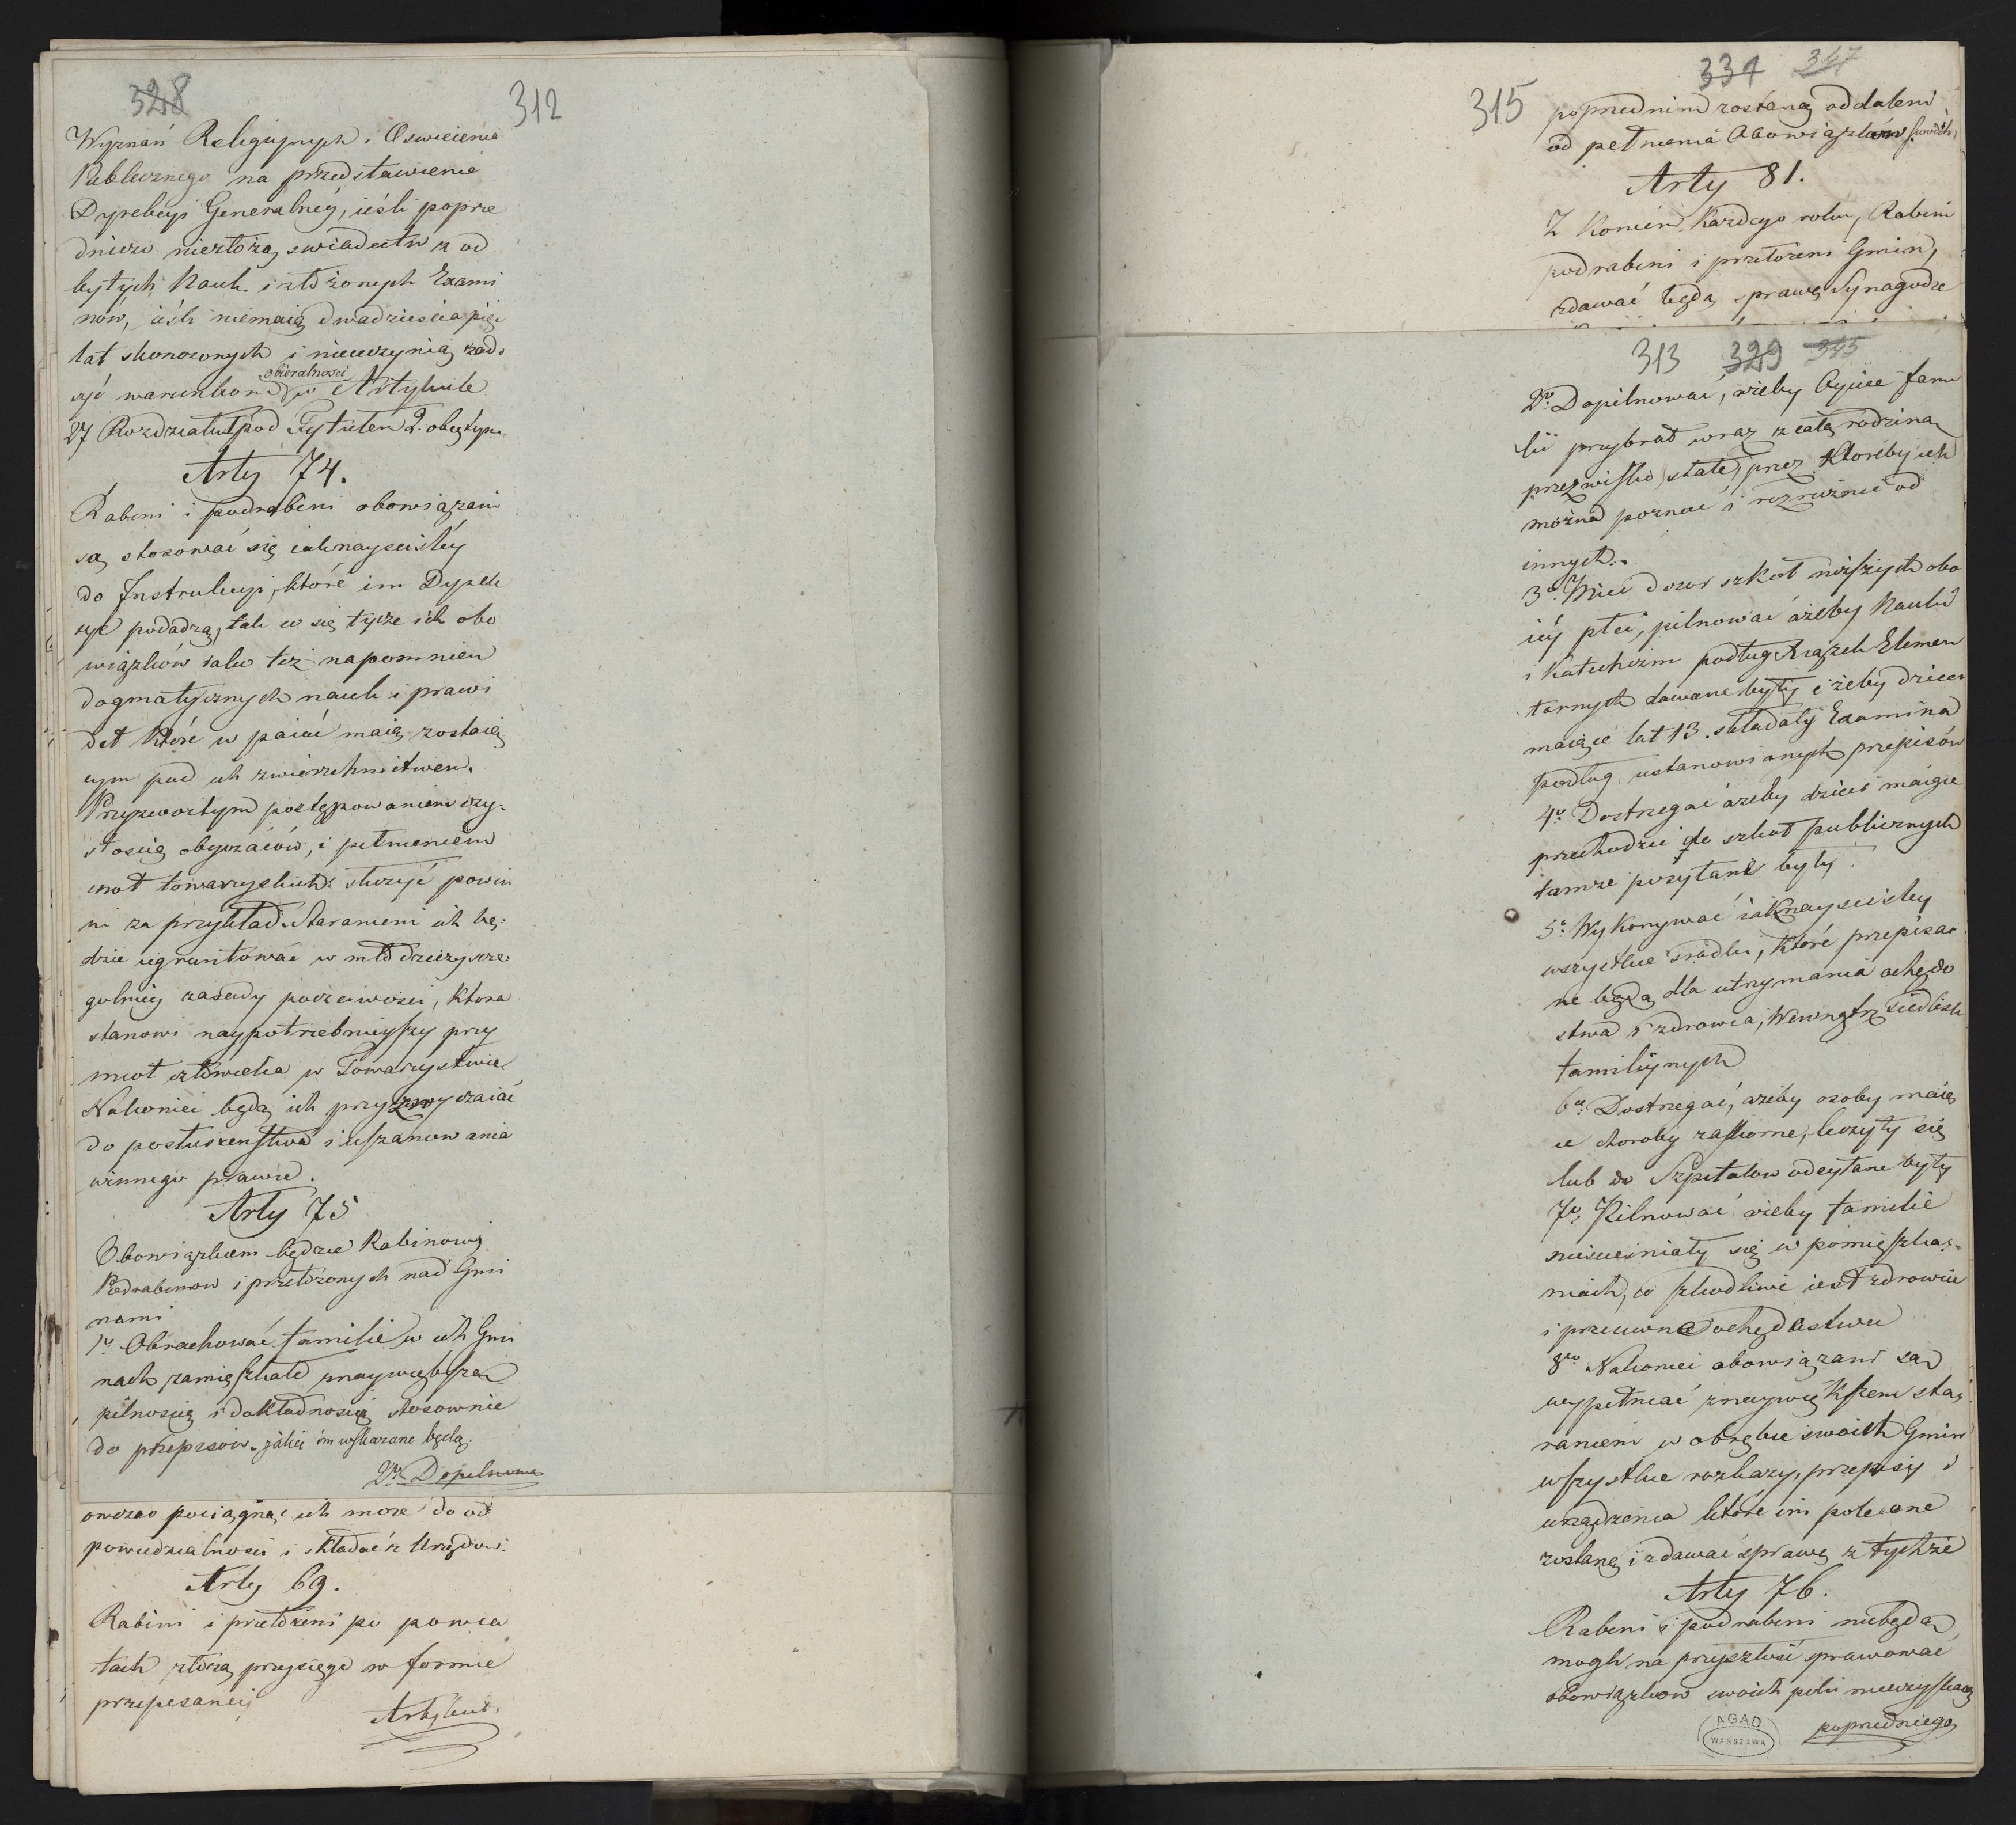 328 312
Wyznań Religiynych i Oswiecenia
Publicznego na przedstawienie
Dyrekcyi Generalnéy, iéśli poprze
dniczo niezłożą swiadectw z od
bytych Nauk i złożonych Exami
nów, iéśli niemaią dwadziescia pięć
lat skonczonych i nieuczynią zado
syć warunkom obieralnosci w Artykule
27 Rozdziału pod Tytułem 2. obiętym
Arty 74.
Rabini i podrabini obowiązani
są stosować się iaknayscisléy
do Instrukcyi, które im Dyrek
cye podadzą, tak co się tycze ich obo
wiązków iako też napomnień
dogmatycznych nauk i prawi
deł które wpaiać maią zostaią
cym pod ich zwierzchnictwem.
Przyzwoitym postępowaniem czy=
stością obyczáiów, i pełnieniem
cnot towarzyskich służyć powin
ni za przykład. Staraniem ich bę=
dzie ugruntować w młodzieży szcze
gulniéy zasady poczciwości, która
stanowi naypotrzebnieyszy przy
miot człowieka w Towarzystwie.
Nakoniec będą ich przyzwyczaiać
do posłuszeństwa i uszanowania
winnego prawu.
Arty 75
Obowiązkiem będzie Rabinow
Podrabinow i przełożonych nad Gmi
nami
1o Obrachować familie w ich Gmi
nach zamięszkałe z naywiększą
pilnoscią i dokładnoscią stosownie
do przepisów jakie im wskazane będą.
2o Dopilnowa
owczas pociągnąć ich może do od
powiedzialności i składać z Urzędow.
Arty 69.
Rabini i przełożeni po powia
tach złożą przysięgę w formie
przepisanéy
Artykuł.
315 331 347
poprzednim zostaną oddaleni
od pełnienia Obowiązków swoich,
Arty 81.
Z końcem każdego roku, Rabini
podrabini i przełożeni Gmin,
zdawać będą sprawę Synagodze
313 329 345
2o Dopilnować, ażeby Oyciec fami
lii przybrał wraz z całą rodziną
przezwisko stałe, przez któreby ich
można poznać i rozróżnić od
innych.
3o Mieć dozór szkół niższych obo
iéy płci, pilnować ażeby Nauki
i Katechizm podług Książek Elemen
tarnych dawane były i żeby dzieci
maiące lat 13. składały Examina
podług ustanowionych przepisów
4o Dostrzegać ażeby dzieci maiące
przechodzić do szkół publicznych
tamże posyłane były.
5o Wykonywać iaknayscisléy
wszystkie srodki, które przepisa
ne będą dla utrzymania ochędo
stwa i zdrowia, wewnątrz siedlisk
familiynych
6o Dostrzegać, ażeby osoby maią
ce choroby zaskorne, leczyły się
lub do Szpitalow odsyłane były
7o Pilnować ażeby familie
niescieśniały się w pomięszka=
niach, co szkodliwe iest zdrowiu
i przeciwne ochędostwu
8o Nakoniec obowiązani są
wypełniać z naywiększem sta=
raniem w obrębie swoich Gmin
wszystkie rozkazy, przepisy i
urządzenia które im polecone
zostaną i zdawać sprawę z tychże
Arty 76.
Rabini i podrabini niebędą
mogli na przyszłość sprawować
obowiązków swoich póki nieuzyskaią
poprzedniego
AGAD
WARSZAWA